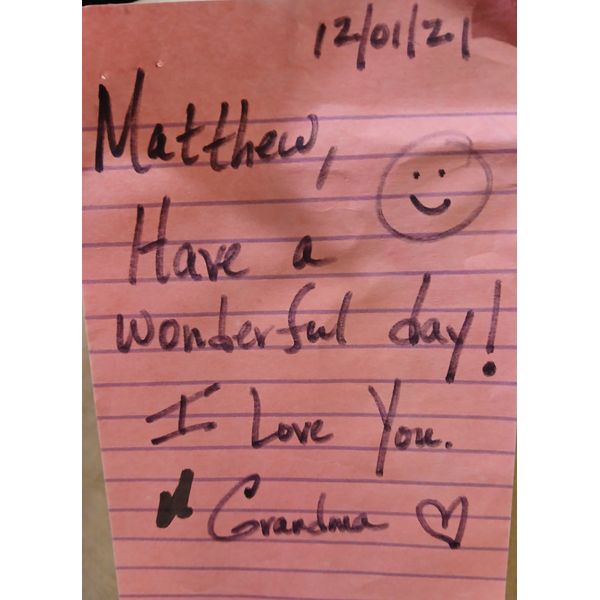 12/01/21
Matthew,
Have a
wonderful day!
I Love You.
Grandma